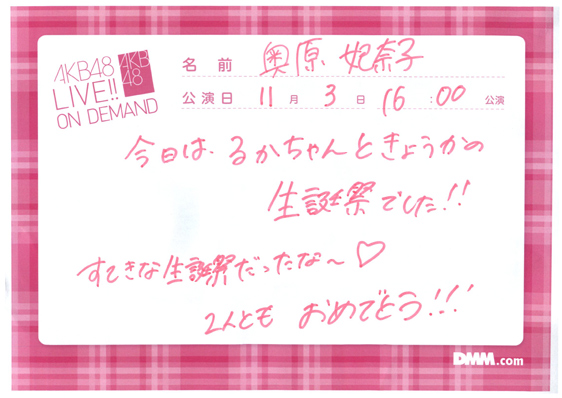 AKB48
LIVE!!
ON DEMAND
AKB
48
名前 奥原 妃奈子
公演日 11月 3日 16:00 公演
今日は、るかちゃんときょうかの
生誕祭でした!!
すてきな生誕祭だったな〜♡
2人とも おめでとう!!!
DMM.com